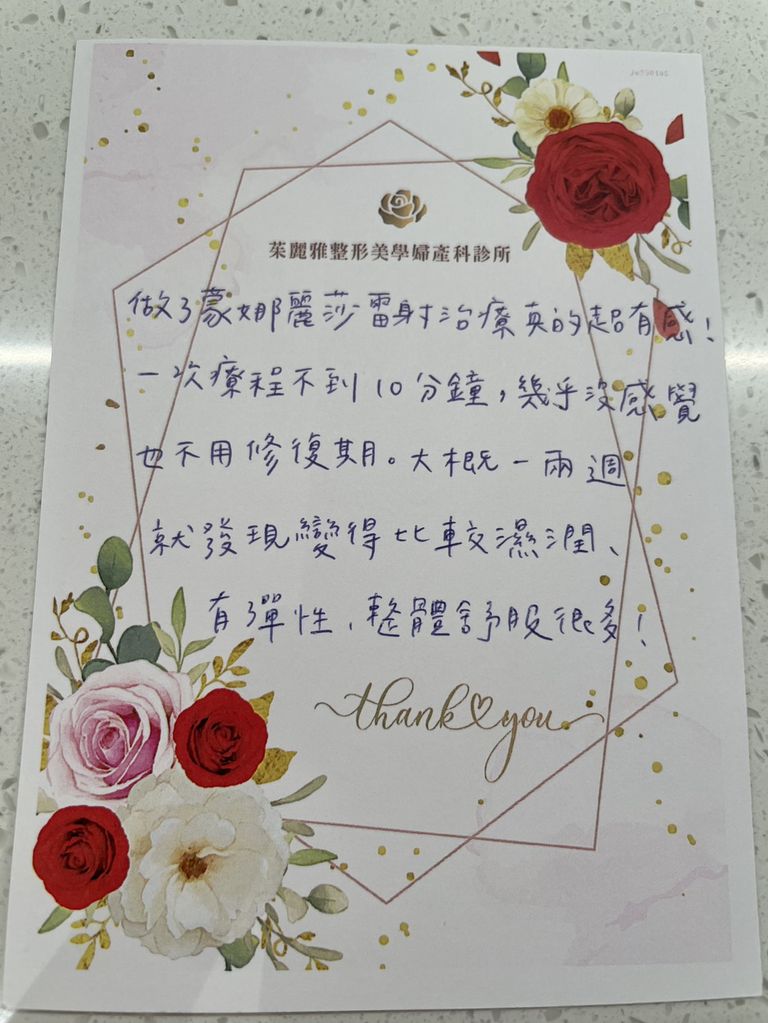 茱麗雅整形美學婦產科診所
做了蒙娜麗莎雷射治療真的超有感!
一次療程不到10分鐘,幾乎沒感覺
也不用修復期。大概一兩週
就發現變得比較濕潤、
有彈性、整體舒服很多!
thank you